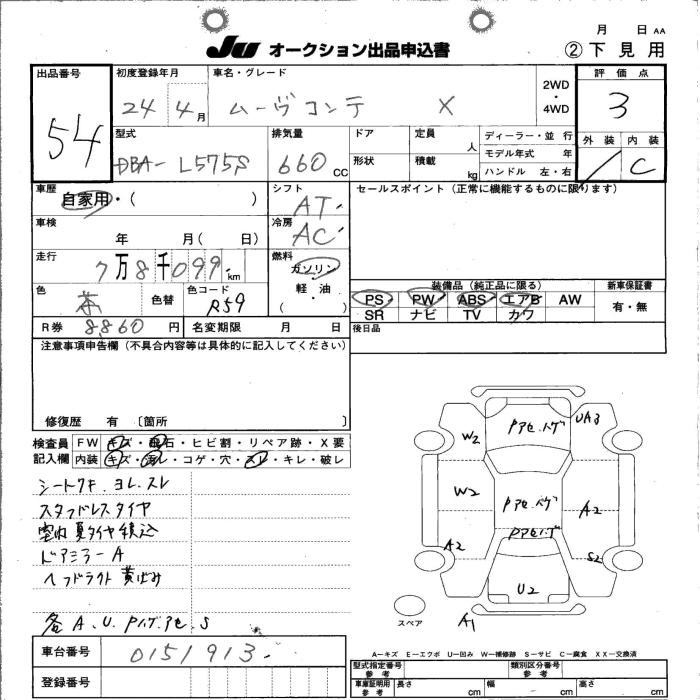 月 日 AA
JU オークション出品申込書 ②下見用
出品番号 54
初度登録年月 24 4月
車名・グレード ムーヴコンテ X
2WD・4WD
評価点 3
外装 内装 C
型式 DBA-L575S
排気量 660CC
ドア
定員 人
形状
積載 kg
ディーラー・並行
モデル年式 年
ハンドル 左・右
車歴 自家用・( )
シフト AT
セールスポイント(正常に機能するものに限ります)
車検 年 月( 日)
冷房 AC
走行 7万8千099km
燃料 ガソリン・軽油・( )
色 茶 色替 色コード R59
装備品(純正品に限る)
PS PW ABS エアB AW
SR ナビ TV カワ
新車保証書 有・無
R券 8860円 名変期限 月 日
後日品
注意事項申告欄(不具合内容等は具体的に記入してください)
修復歴 有〔箇所 〕
検査員記入欄
FW キズ・飛石・ヒビ割・リペア跡・X要
内装 キズ・汚レ・コゲ・穴・スレ・キレ・破レ
シートワキ.ヨレ.スレ
スタッドレスタイヤ
室内夏タイヤ積込
ドアミラーA
ヘッドライト黄ばみ
各A.U.Pハゲ.アセ.S
W2 Pアセ.ハゲ UA3
W2 Pアセ.ハゲ A2
Pアセ.ハゲ
A2 S2
U2
スペア A1
A―キズ E―エクボ U―凹み W―補修跡 S―サビ C―腐食 XX―交換済
車台番号 0151913
登録番号
型式指定番号 参考
類別区分番号 参考
車庫証明用 参考 長さ cm 幅 cm 高さ cm